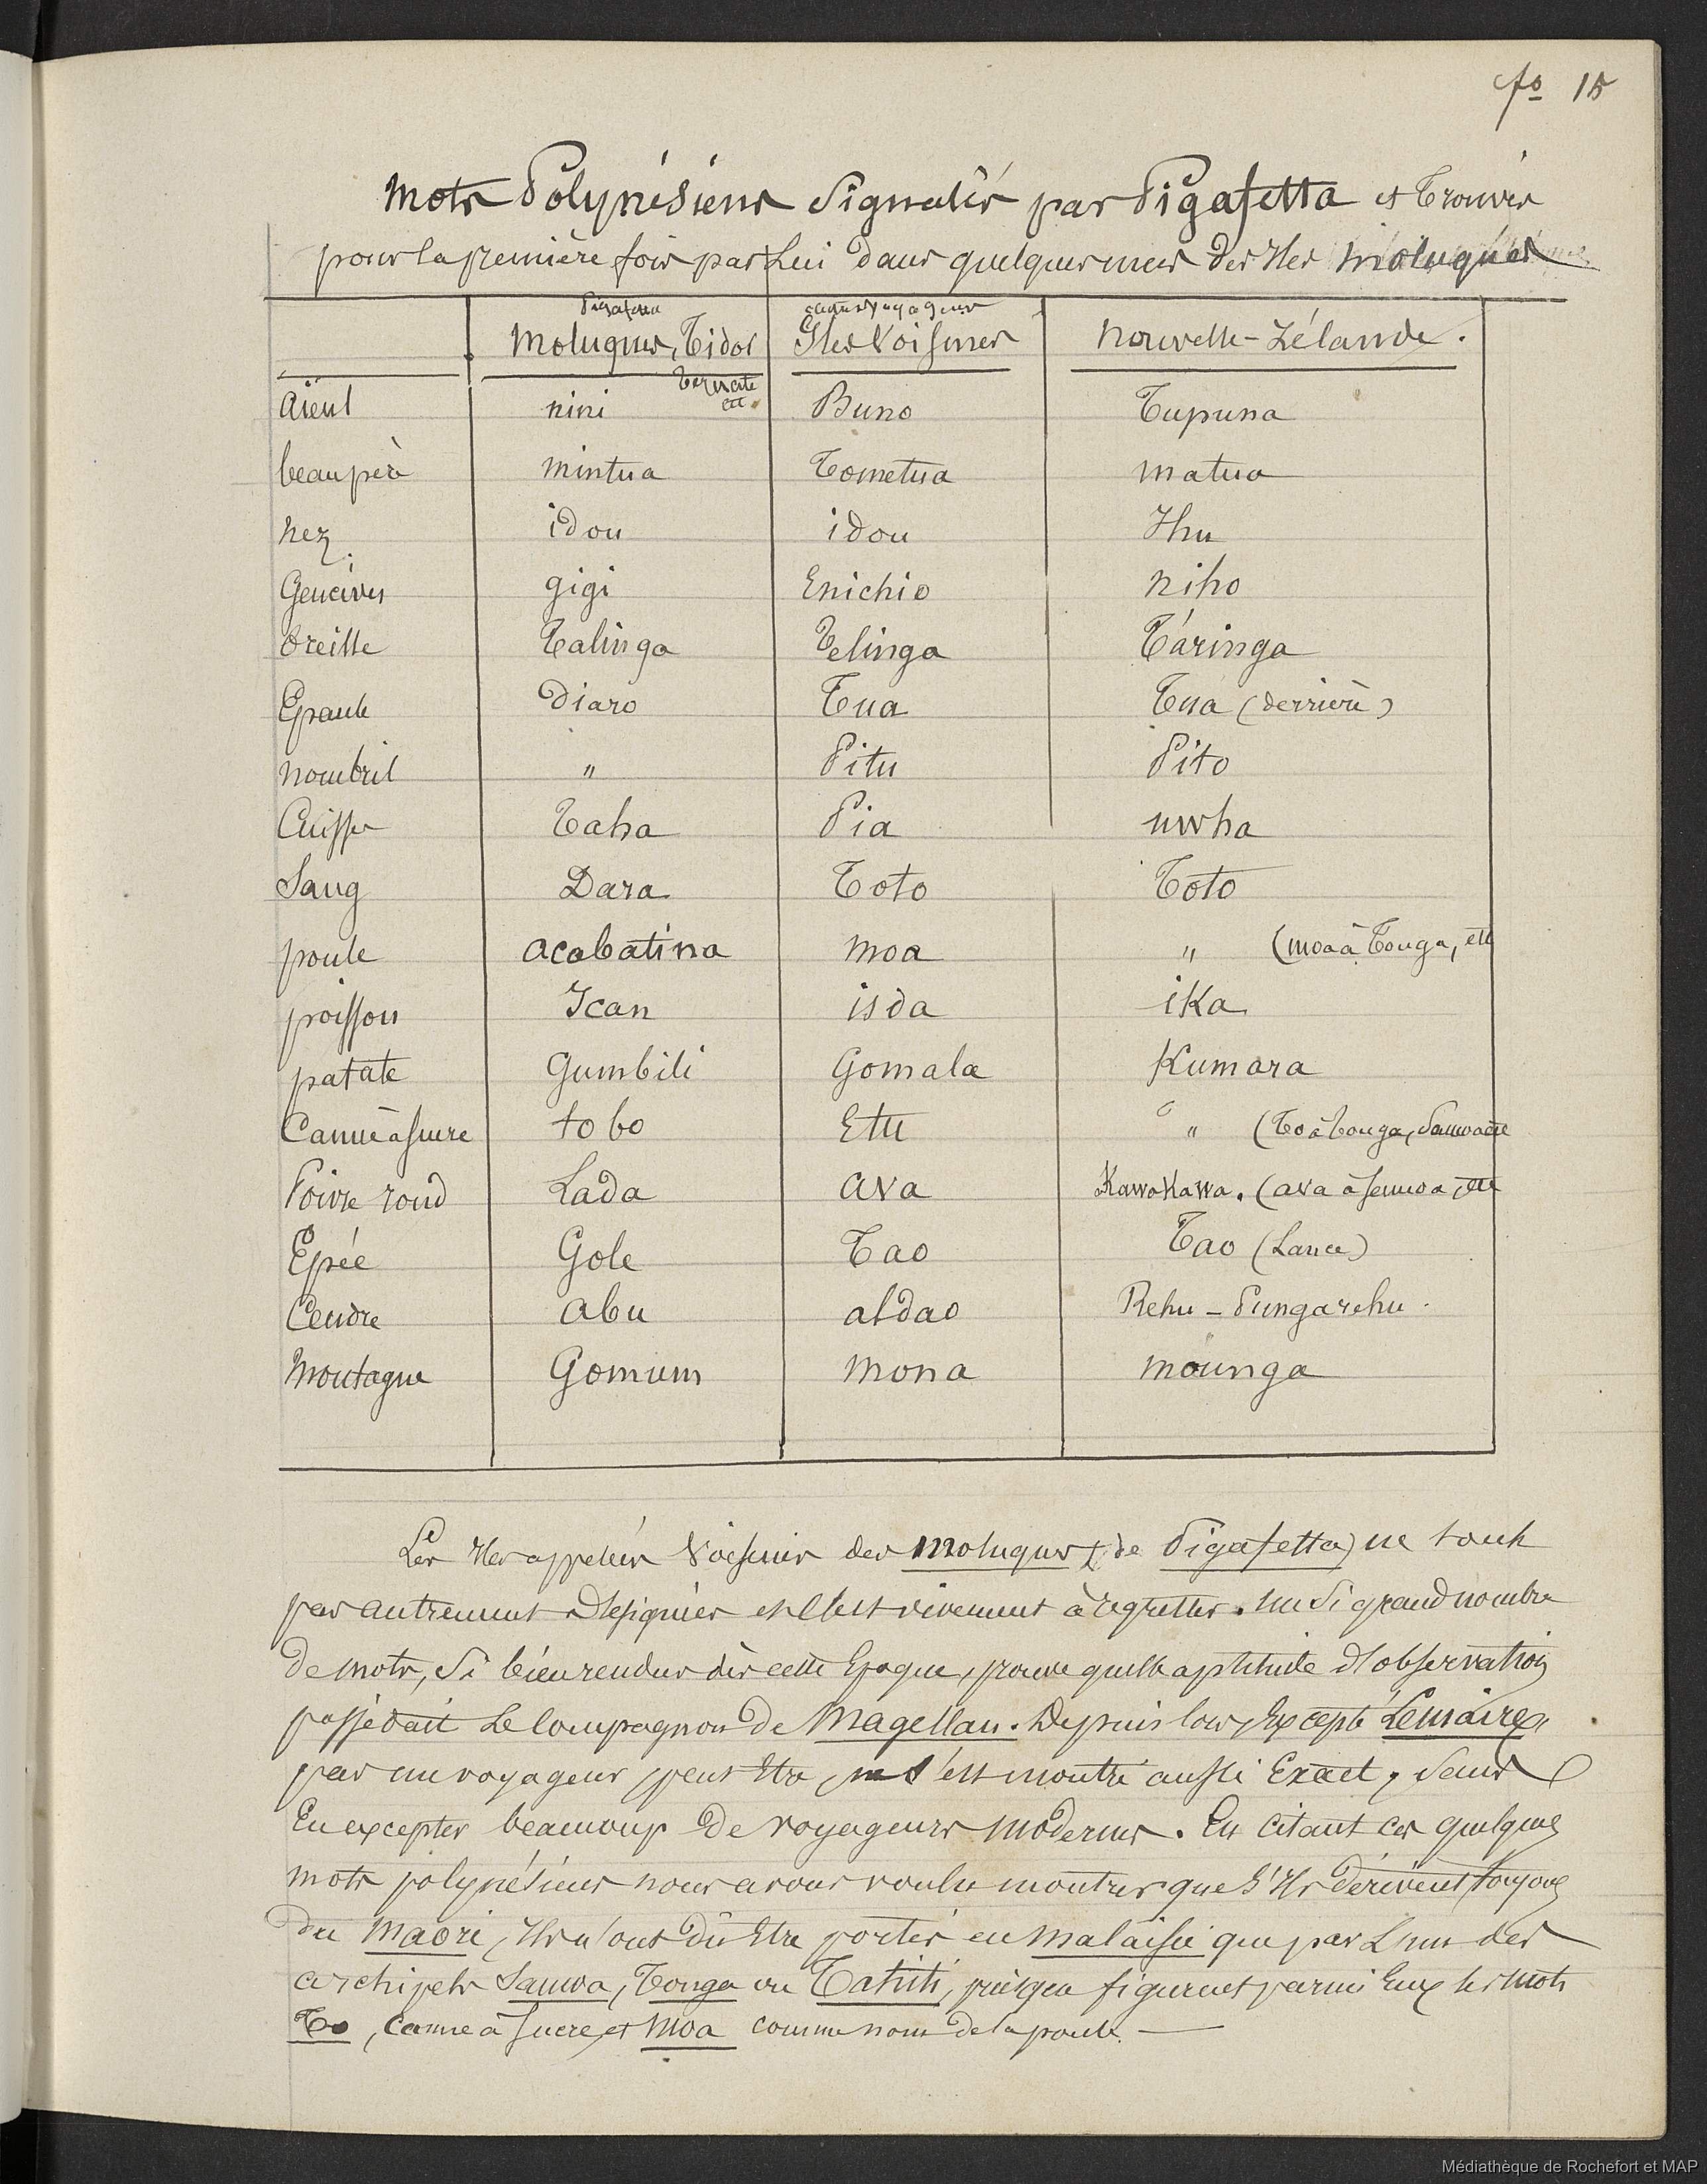 fo 15
Mots Polynésiens Signalés par Pigafetta et trouvés
pour la première fois par Lui dans quelques unes des Iles Moluques
Pigafetta
Moluques, Tidor
Ternate
etc.
autres voyageurs
Iles Voisines
Nouvelle-Zélande.
Aïeul nini Buno Tupuna
beaupère mintua Tometua matua
nez idou idou Ihu
Gencives gigi Enichio niho
Oreille Talinga Telinga Taringa
Epaule Diaro Tua Tua (derrière)
nombril " Pitu Pito
Cuisse Taha Pia uwha
Sang Dara Toto Toto
poule acabatina moa " (moa à Tonga, etc
poisson Ican isda ika
patate gumbili gomala Kumara
Canne à sucre tobo Etu " (To à Tonga, Samoa etc
Poivre rond Lada ava Kawakawa. (ava à Samoa, etc
Epée Gole Tao Tao (Lance)
Cendre abu abdao Rehu - Pungarehu.
Montagne Gomum mona mounga
Les Iles appelées Voisines des Moluques (de Pigafetta) ne sont
pas autrement désignées et c'est vivement à regretter. Un si grand nombre
de mots, si bien rendus dès cette époque, prouve quelle aptitude d'observation
possédait le compagnon de Magellan. Depuis lors, Excepté Lemaire,
pas un voyageur peut être, ne s'est montré aussi Exact, sans
En excepter beaucoup de voyageurs modernes. En citant ces quelques
mots polynésiens nous avons voulu montrer que S'Ils dérivent toujours
du Maori, Ils n'ont dû Etre portés en Malaisie que par L'un des
archipels Samoa, Tonga ou Tahiti, puisque figurent parmi Eux les mots
To, canne à sucre, et Moa comme nom de la poule. —
Médiathèque de Rochefort et MAP